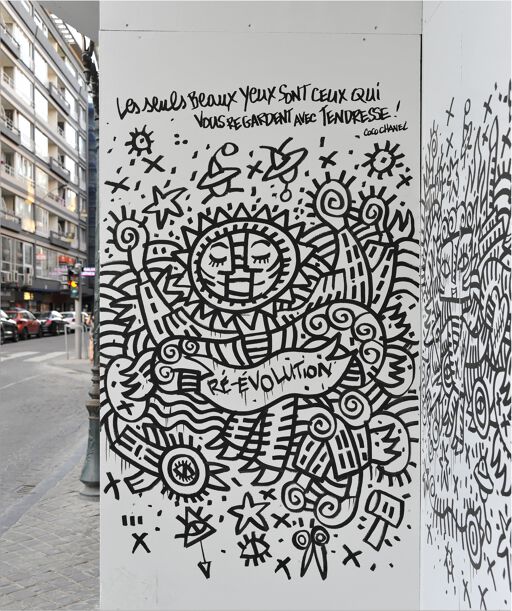 Les seuls Beaux Yeux SONT CEUX QUI
VOUS REGARDENT AVEC TENDRESSE !
COCO CHANEL
RÉ-ÉVOLUTION